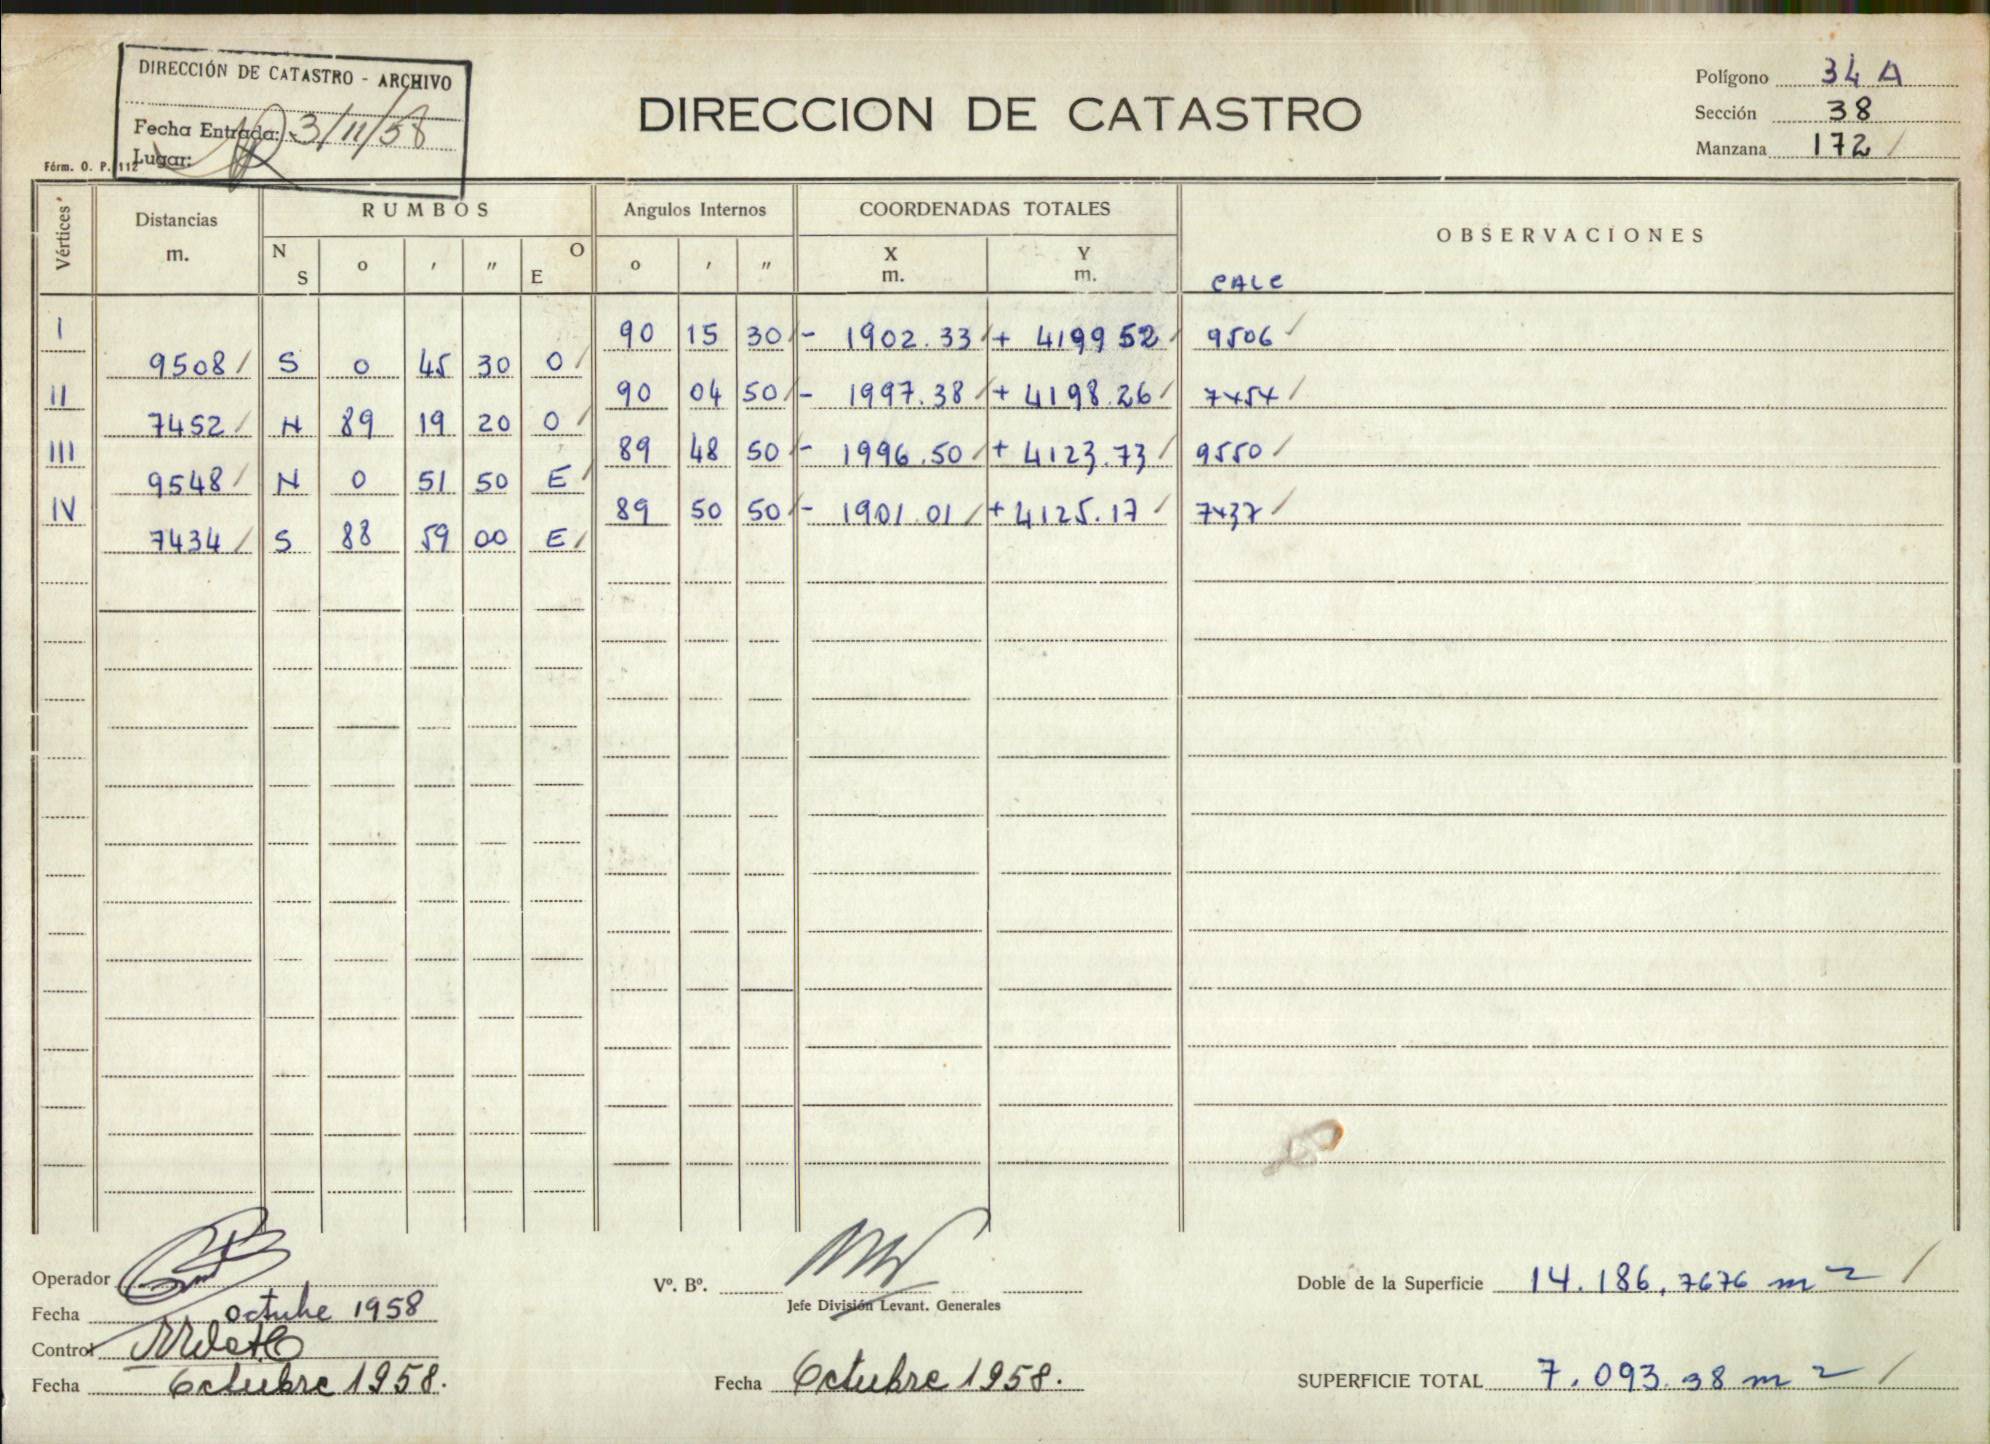 DIRECCIÓN DE CATASTRO - ARCHIVO
Fecha Entrada: 3/11/58
Lugar:
Fórm. O. P. 112
DIRECCION DE CATASTRO
Polígono 34 A
Sección 38
Manzana 172 /
Vértices
Distancias
m.
RUMBOS
N
S
o
'
"
O
E
Angulos Internos
o
'
"
COORDENADAS TOTALES
X
m.
Y
m.
OBSERVACIONES
CALC
I 90 15 30 / - 1902.33 / + 4199 52 / 9506 /
9508 / S 0 45 30 O /
II 90 04 50 / - 1997.38 / + 4198.26 / 7454 /
7452 / N 89 19 20 O /
III 89 48 50 / - 1996.50 / + 4123.73 / 9550 /
9548 / N 0 51 50 E /
IV 89 50 50 / - 1901.01 / + 4125.17 / 7437 /
7434 / S 88 59 00 E /
Operador
Fecha octubre 1958
Control
Fecha Octubre 1958.
Vº. Bº.
Jefe División Levant. Generales
Fecha Octubre 1958.
Doble de la Superficie 14.186,7676 m2 /
SUPERFICIE TOTAL 7.093.38 m2 /